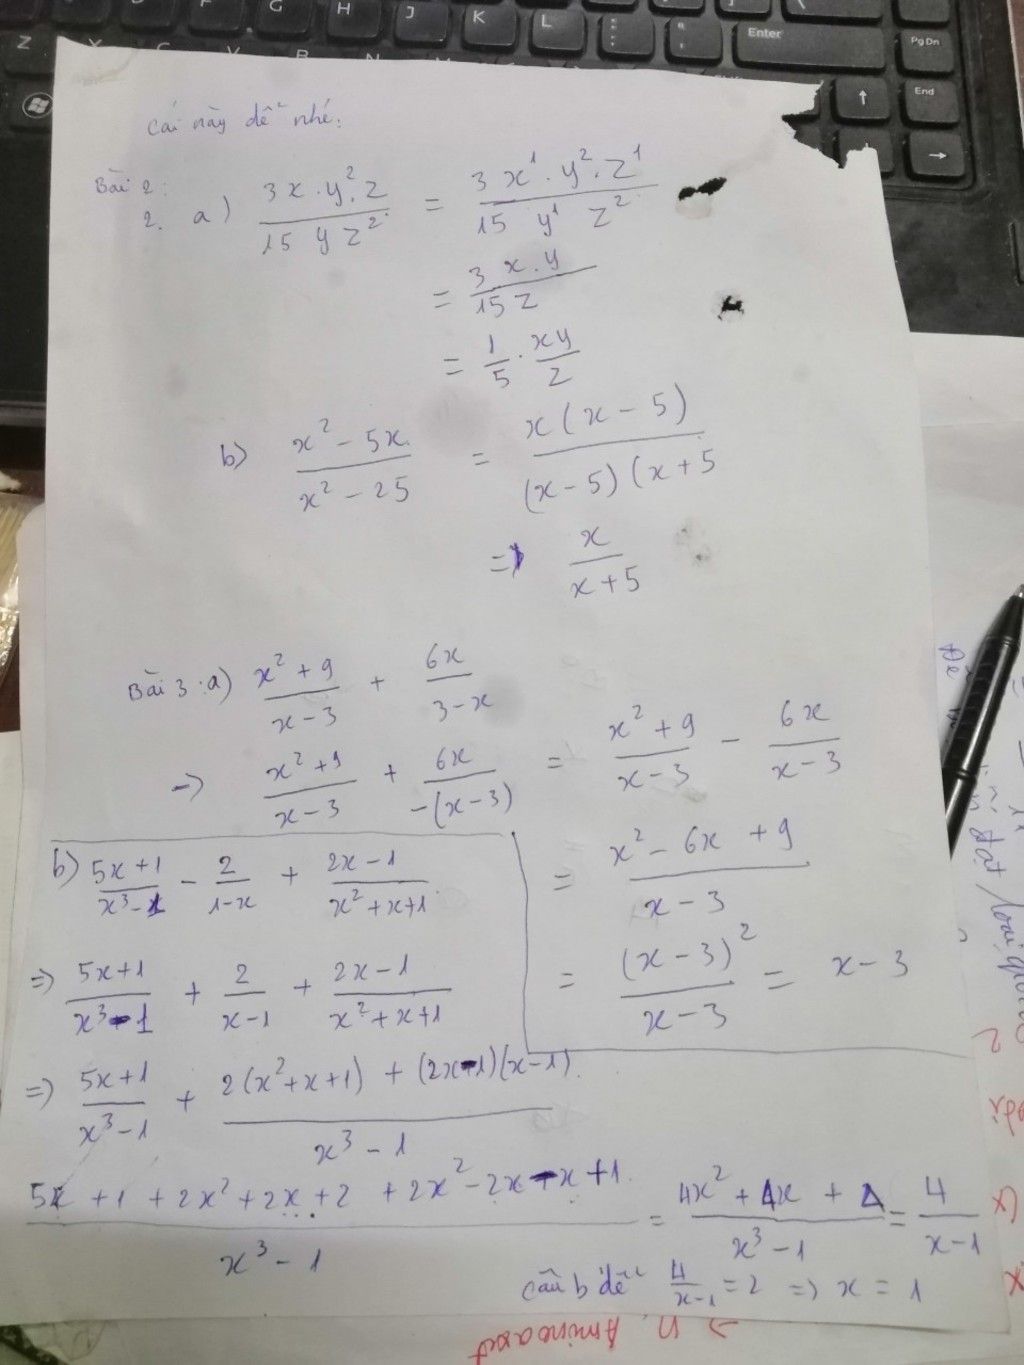 Z X C V B N
F G H J K L
Enter
PgDn
End
cái này dễ nhé:
Bài 2:
2. a) (3x.y².z)/(15yz²) = (3x¹.y².z¹)/(15 y¹ z²)
= (3x.y)/(15z)
= 1/5 . xy/z
b) (x² - 5x)/(x² - 25) = x(x - 5)/(x - 5)(x + 5
=) x/(x + 5)
Bài 3: a) (x² + 9)/(x - 3) + 6x/(3 - x)
-> (x² + 9)/(x - 3) + 6x/-(x - 3) = (x² + 9)/(x - 3) - 6x/(x - 3)
= (x² - 6x + 9)/(x - 3)
= (x - 3)²/(x - 3) = x - 3
b) (5x + 1)/(x³ - 1) - 2/(1 - x) + (2x - 1)/(x² + x + 1)
=> (5x + 1)/(x³ - 1) + 2/(x - 1) + (2x - 1)/(x² + x + 1)
=> (5x + 1)/(x³ - 1) + (2(x² + x + 1) + (2x - 1)(x - 1))/(x³ - 1)
(5x + 1 + 2x² + 2x + 2 + 2x² - 2x - x + 1)/(x³ - 1) = (4x² + 4x + 4)/(x³ - 1) = 4/(x - 1)
câu b dễ 4/(x - 1) = 2 => x = 1
đạt loại
Aminoaxit